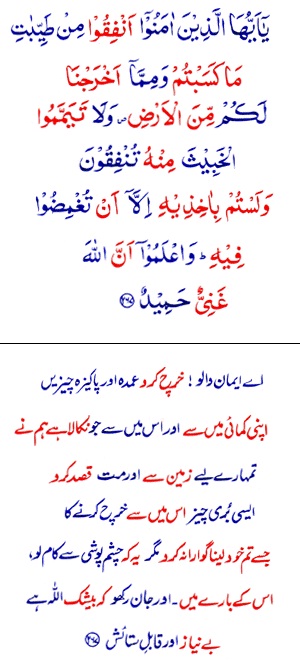 يٰۤاَيُّهَا الَّذِيْنَ اٰمَنُوْۤا اَنْفِقُوْا مِنْ طَيِّبٰتِ
مَا كَسَبْتُمْ وَمِمَّاۤ اَخْرَجْنَا
لَكُمْ مِّنَ الْاَرْضِ ۪ وَلَا تَيَمَّمُوا
الْخَبِيْثَ مِنْهُ تُنْفِقُوْنَ
وَلَسْتُمْ بِاٰخِذِيْهِ اِلَّاۤ اَنْ تُغْمِضُوْا
فِيْهِ ؕ وَاعْلَمُوْۤا اَنَّ اللّٰهَ
غَنِىٌّ حَمِيْدٌ ﴿۲۶۷﴾
اے ایمان والو ! خرچ کرو عمدہ اور پاکیزہ چیزیں
اپنی کمائی میں سے اور اس میں سے جو نکالا ہے ہم نے
تمہارے لیے زمین سے اور مت قصد کرو
ایسی بُری چیز اس میں سے خرچ کرنے کا
جسے تم خود لینا گوارا نہ کرو مگر یہ کہ چشم پوشی سے کام لو،
اس کے بارے میں۔ اور جان رکھو کہ بیشک اللہ ہے
بے نیاز اور قابلِ ستائش ﴿۲۶۷﴾